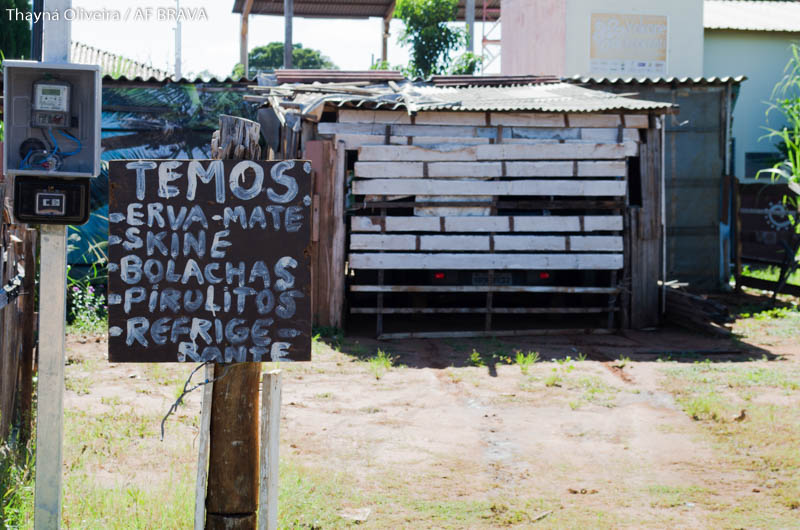 Thayná Oliveira / AF BRAVA
TEMOS:
-ERVA-MATE
-SKINE
-BOLACHAS
-PIRULITOS
-REFRIGE-
RANTE